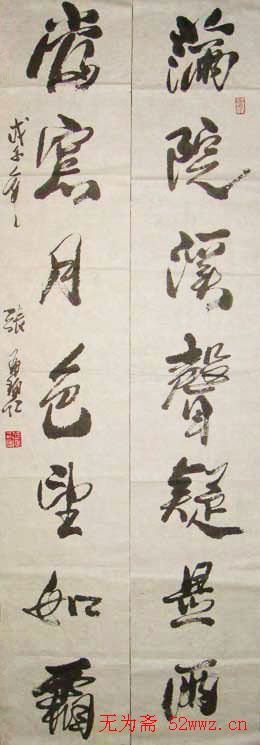 满院溪聲疑是雨
當窓月色望如霜
戊子年
張
无为斋 52wwz.cn